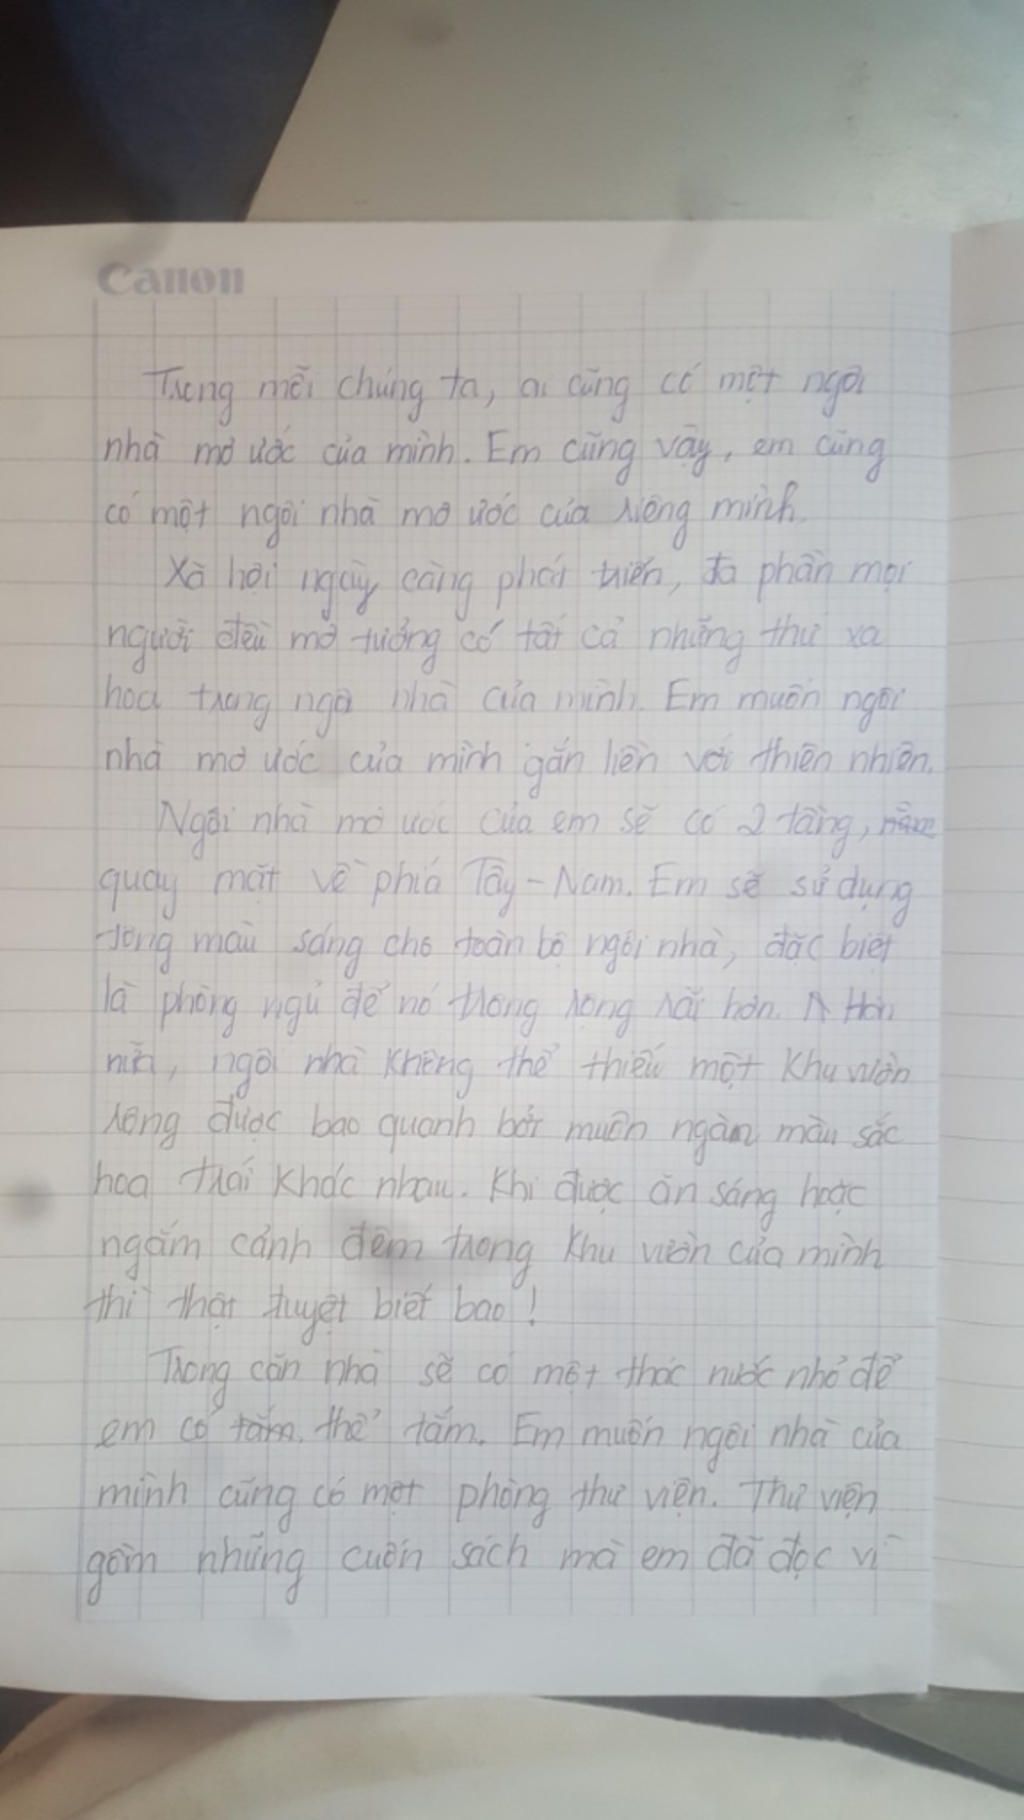 Canon
Trong mỗi chúng ta, ai cũng có một ngôi
nhà mơ ước của mình. Em cũng vậy, em cũng
có một ngôi nhà mơ ước của riêng mình.
Xã hội ngày càng phát triển, đa phần mọi
người đều mơ tưởng có tất cả những thứ xa
hoa trong ngôi nhà của mình. Em muốn ngôi
nhà mơ ước của mình gắn liền với thiên nhiên.
Ngôi nhà mơ ước của em sẽ có 2 tầng, nằm
quay mặt về phía Tây-Nam. Em sẽ sử dụng
tông màu sáng cho toàn bộ ngôi nhà, đặc biệt
là phòng ngủ để nó trông rộng rãi hơn. Hơn
nữa, ngôi nhà không thể thiếu một khu vườn
rộng được bao quanh bởi muôn ngàn màu sắc
hoa trái khác nhau. Khi được ăn sáng hoặc
ngắm cảnh đêm trong khu vườn của mình
thì thật tuyệt biết bao!
Trong căn nhà sẽ có một thác nước nhỏ để
em có tắm thể tắm. Em muốn ngôi nhà của
mình cũng có một phòng thư viện. Thư viện
gồm những cuốn sách mà em đã đọc vì